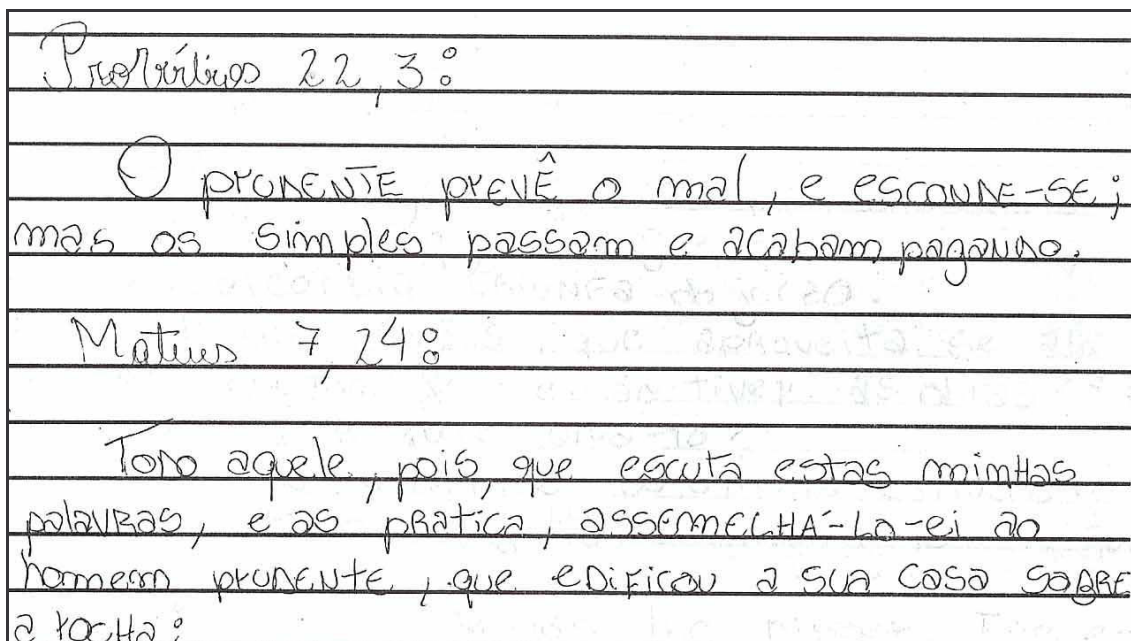 Provérbios 22,3:
O prudente prevê o mal, e esconde-se;
mas os simples passam e acabam pagando.
Mateus 7,24:
Todo aquele, pois, que escuta estas minhas
palavras, e as pratica, assemelhá-lo-ei ao
homem prudente, que edificou a sua casa sobre
a rocha: